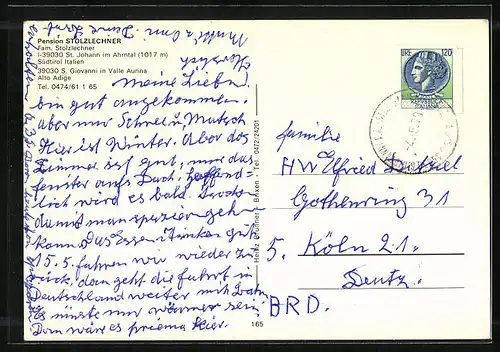 Pension STOLZLECHNER
Fam. Stolzlechner
I-39030 St. Johann im Ahrntal (1017 m)
Südtirol Italien
39030 S. Giovanni in Valle Aurina
Alto Adige
Tel. 0474/61 1 65
Meine Lieben!
bin gut angekommen.
aber nur Schnee u. Matsch
Hier ist Winter. Aber das
Zimmer ist gut, nur das
fenster aufs Dach. hoffend-
lich wird es bald
damit man spazieren gehn
kann. Das Essen Trinken gut
15.5. fahren wir wieder zu
rück, dann geht die fahrt in
Deutschland weiter mit
Es müste nur wärmer sein
Dann wäre es prima hier.
Heinz Brunner - Brixen - Tel. 0472/24201
165
LIRE 120
familie
HW Elfried
Gothenring 31
5. KÖLN 21.
Deutz.
B.R.D.